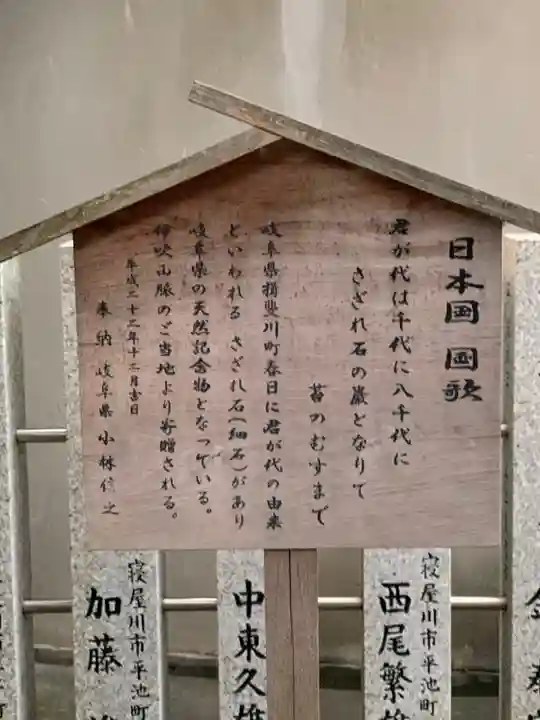 日本国国歌
君が代は千代に八千代に
さざれ石の巌となりて
苔のむすまで
岐阜県揖斐川町春日に君が代の由来
といわれる さざれ石(細石)があり
岐阜県の天然記念物となっている。
伊吹山脈のご当地より寄贈される。
平成二十二年十二月吉日
奉納 岐阜県 小林信之
寝屋川市平池町
西尾繁
中東久雄
寝屋川市平池町
加藤